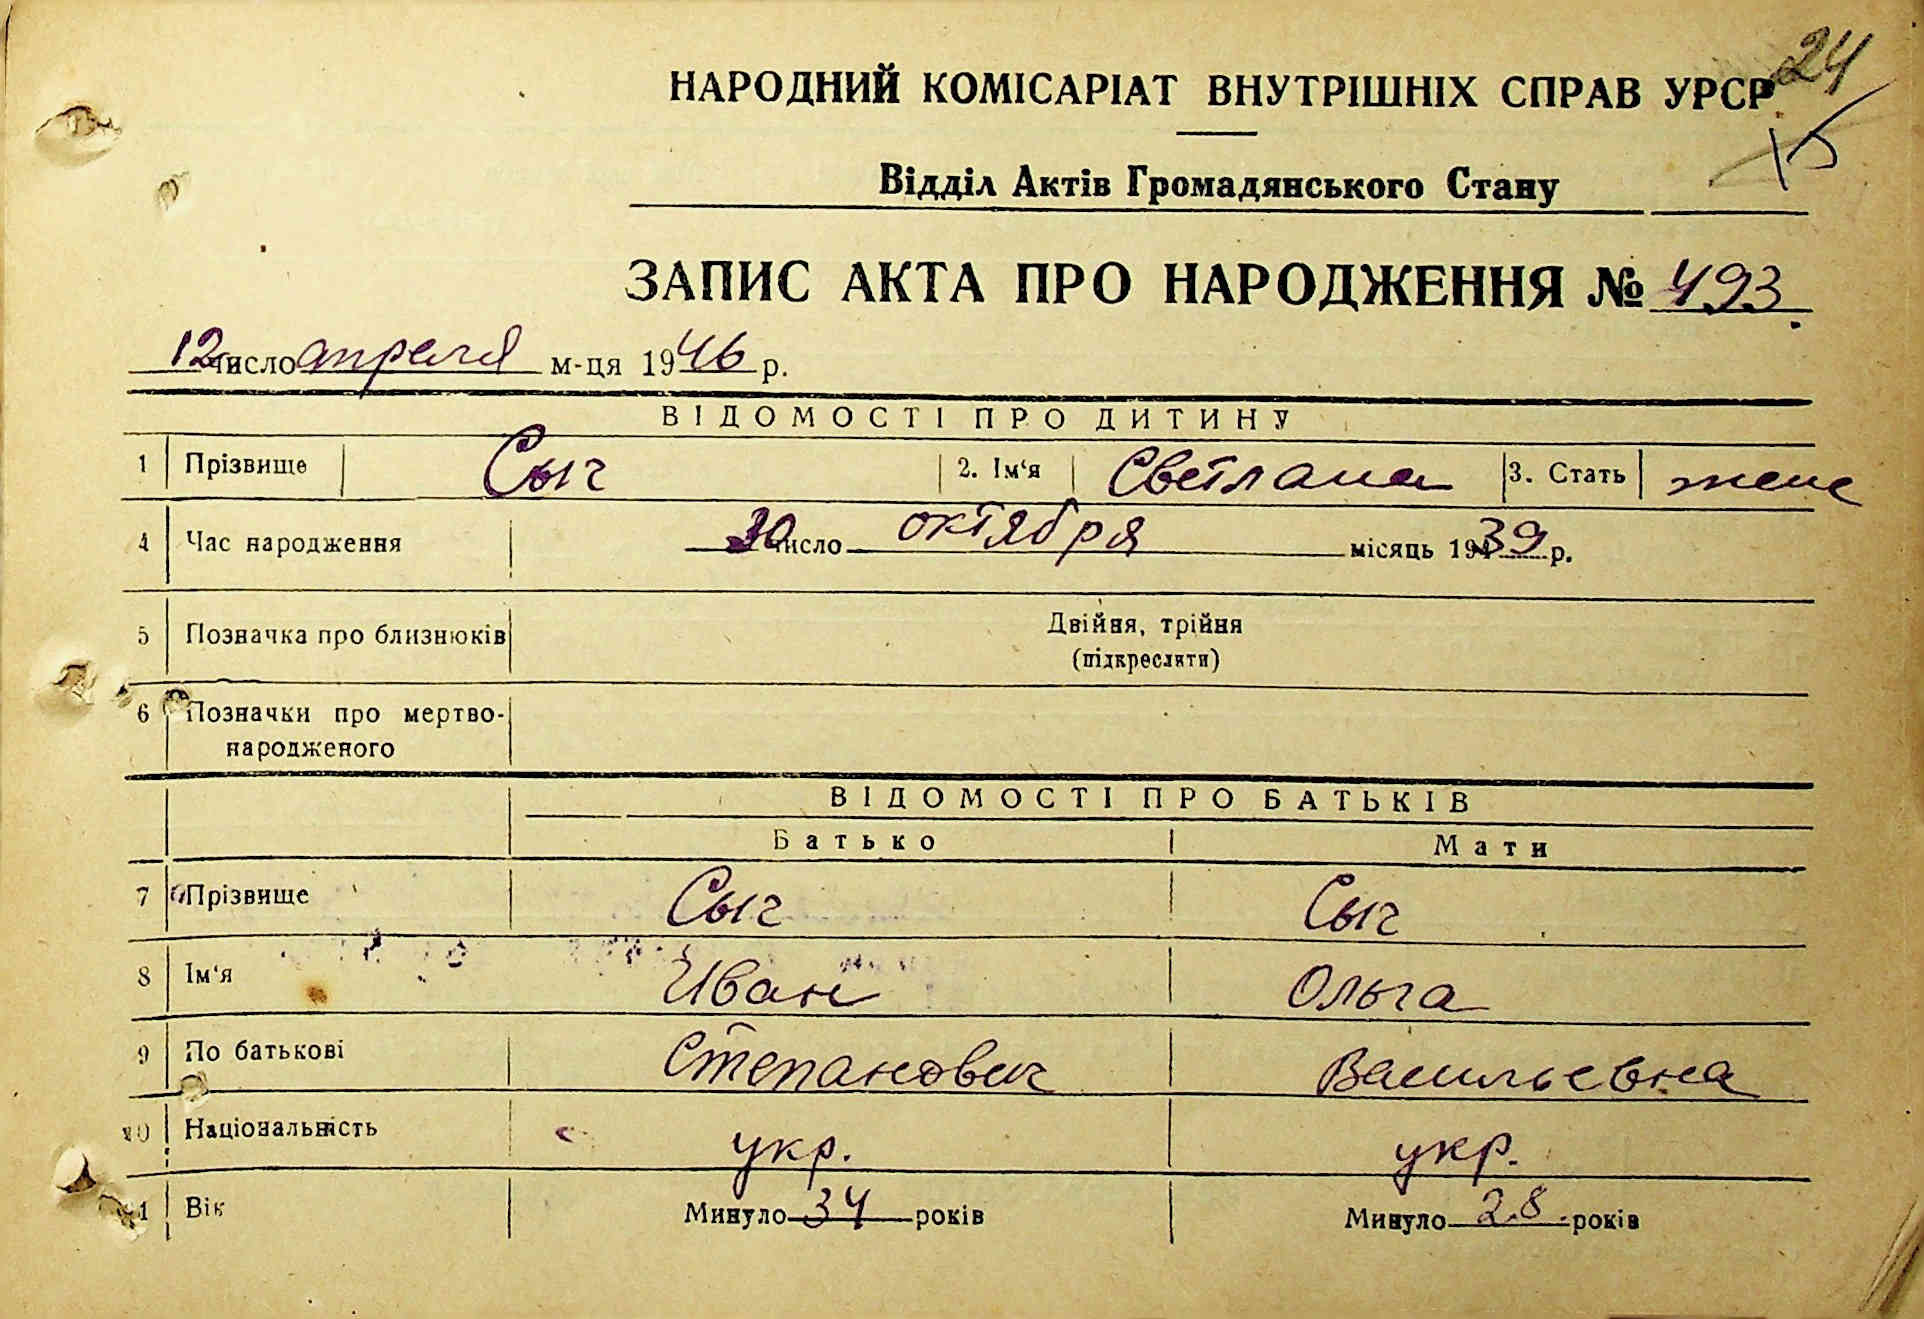 24
15
НАРОДНИЙ КОМІСАРІАТ ВНУТРІШНІХ СПРАВ УРСР
Відділ Актів Громадянського Стану
ЗАПИС АКТА ПРО НАРОДЖЕННЯ № 493
12 число апреля м-ця 1946 р.
ВІДОМОСТІ ПРО ДИТИНУ
1 Прізвище Сыч 2. Ім‘я Светлана 3. Стать жене
4 Час народження 30 число октября місяць 1939 р.
5 Позначка про близнюків Двійня, трійня
(підкреслити)
6 Позначки про мертво-
народженого
ВІДОМОСТІ ПРО БАТЬКІВ
Батько Мати
7 Прізвище Сыч Сыч
8 Ім‘я Иван Ольга
9 По батькові Степанович Васильевна
10 Національність укр. укр.
11 Вік Минуло 34 років Минуло 28 років